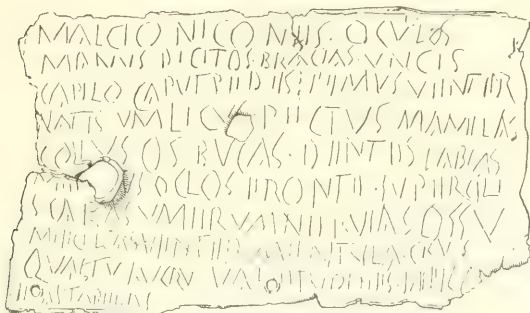 MALCIO NICONIIS · OCVLOS
MANVS DICITOS · BRACIAS · VNCIS
CAPILO CAPVT PIIDIIS FIIMVS VIINTIIR
NATIS VMLICVS PIICTVS MAMILAS
COLVS OS BVCAS · DIINTIIS LABIAS
OCLOS FRONTII SVPIIRCILI
SCAPLAS VMIIRVM NIIRVIAS OSSV
VIINTIIR MIINTVLA CRVS
QVASTV LVCRV VALIITVDINIIS DIIFICO
IN AS TABIILAS